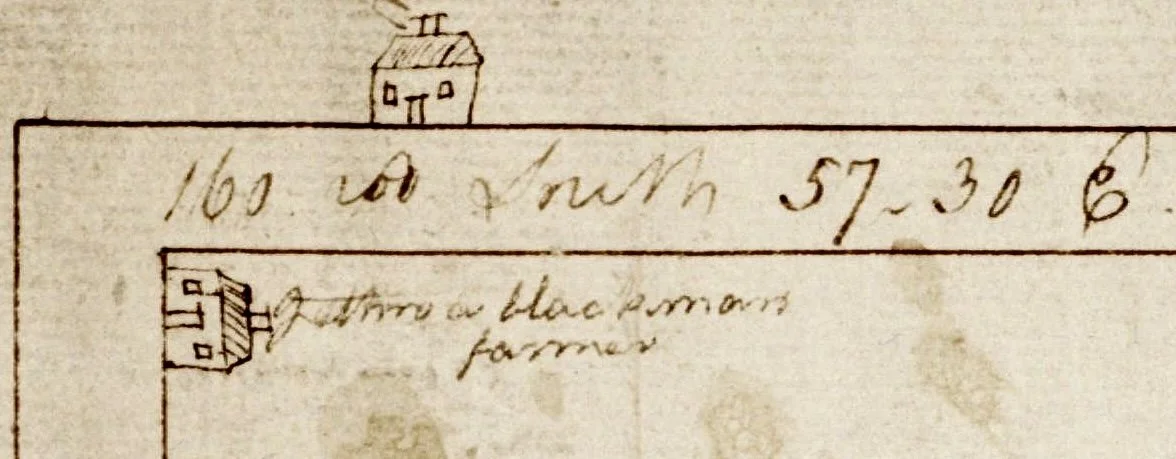 160 rod South 57-30 E
Jethro a blackman
farmer